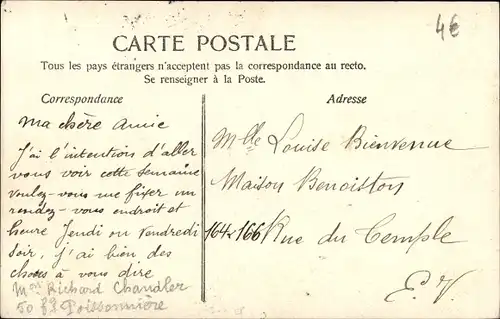 4€
CARTE POSTALE
Tous les pays étrangers n'acceptent pas la correspondance au recto.
Se renseigner à la Poste.
Correspondance
Adresse
Ma chère Amie
J'ai l'intention d'aller
vous voir cette semaine
voulez-vous me fixer un
rendez-vous endroit et
heure Jeudi ou Vendredi
soir, j'ai bien des
choses à vous dire
Mon Richard Chandler
50 fg Poissonnière
Mlle Louise Bienvenue
Maison Benoiston
164 & 166 Rue du Temple
E.V.